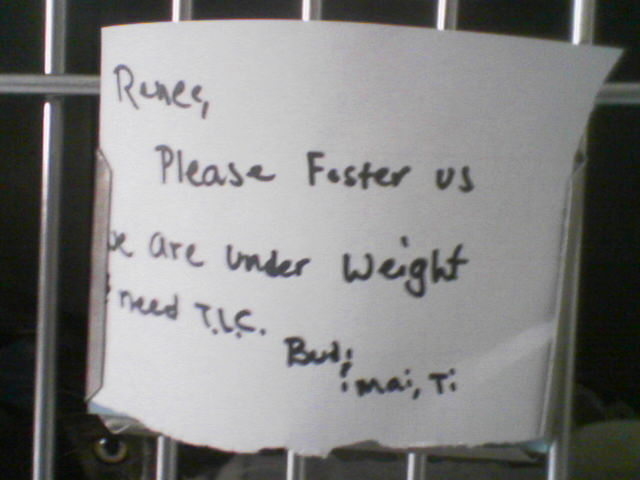 Renee,
Please Foster us
We are under Weight
& need T.L.C.
Bud,
& mai, Ti